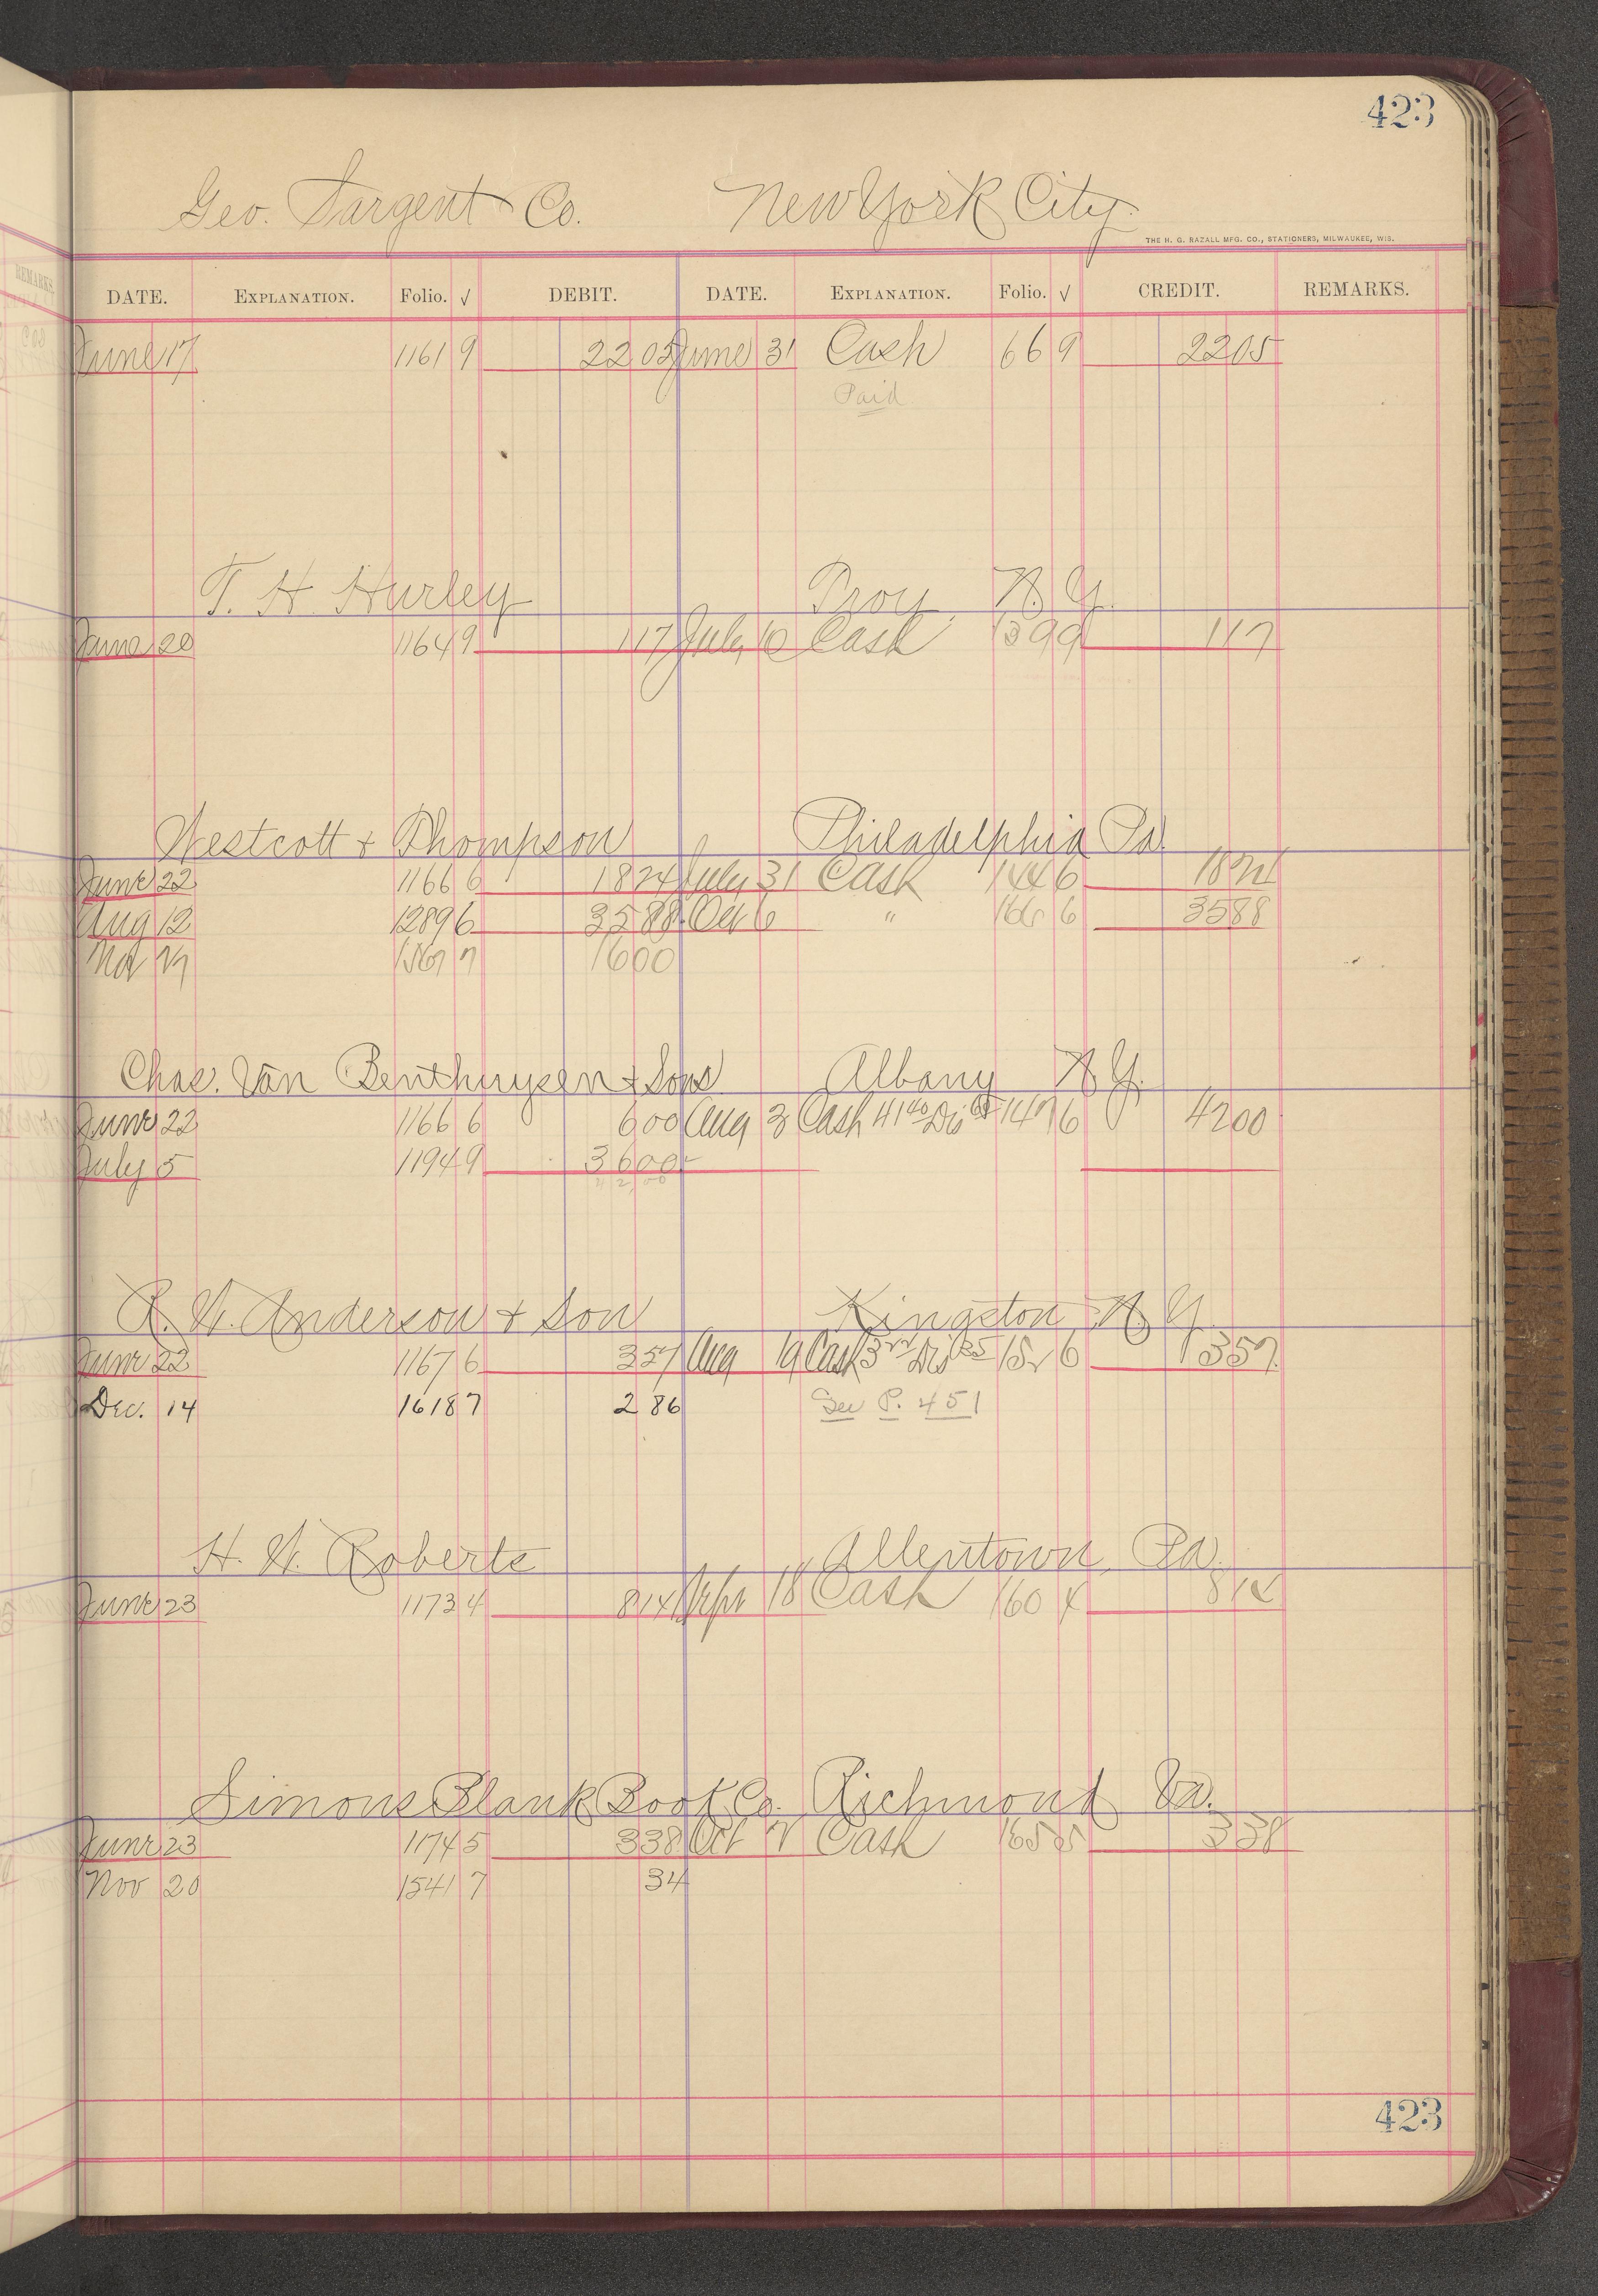 423
Geo. Sargent Co. New York City.
THE H. G. RAZALL MFG. CO., STATIONERS, MILWAUKEE, WIS.
DATE. EXPLANATION. Folio. √ DEBIT. DATE. EXPLANATION. Folio. √ CREDIT. REMARKS.
June 17 1161 9 22 05 June 31 Cash 66 9 22 05
Paid
T. H. Hurley Troy, N. Y.
June 20 1164 9 1 17 July 10 Cash 139 9 1 17
Westcott + Thompson Philadelphia Pa.
June 22 1166 6 18 24 July 31 Cash 144 6 18 24
Aug 12 1289 6 35 88 Oct 6 " 166 6 35 88
Nov 27 1567 7 16 00
Chas. Van Benthuysen + Sons Albany N. Y.
June 22 1166 6 6 00 Aug 3 Cash 41 40 Dis 60 147 6 42 00
July 5 1194 9 36 00
42,00
R. W. Anderson + Son Kingston N. Y.
June 22 1167 6 3 57 Aug 19 Cash 3 22 Dis 35 152 6 3 57
Dec. 14 1618 7 2 86 See P. 451
H. W. Roberts Allentown, Pa.
June 23 1173 4 8 14 Sept 18 Cash 160 4 8 14
Simons Blank Book Co. Richmond Va.
June 23 1174 5 3 38 Oct 2 Cash 165 5 3 38
Nov 20 1541 7 34
423